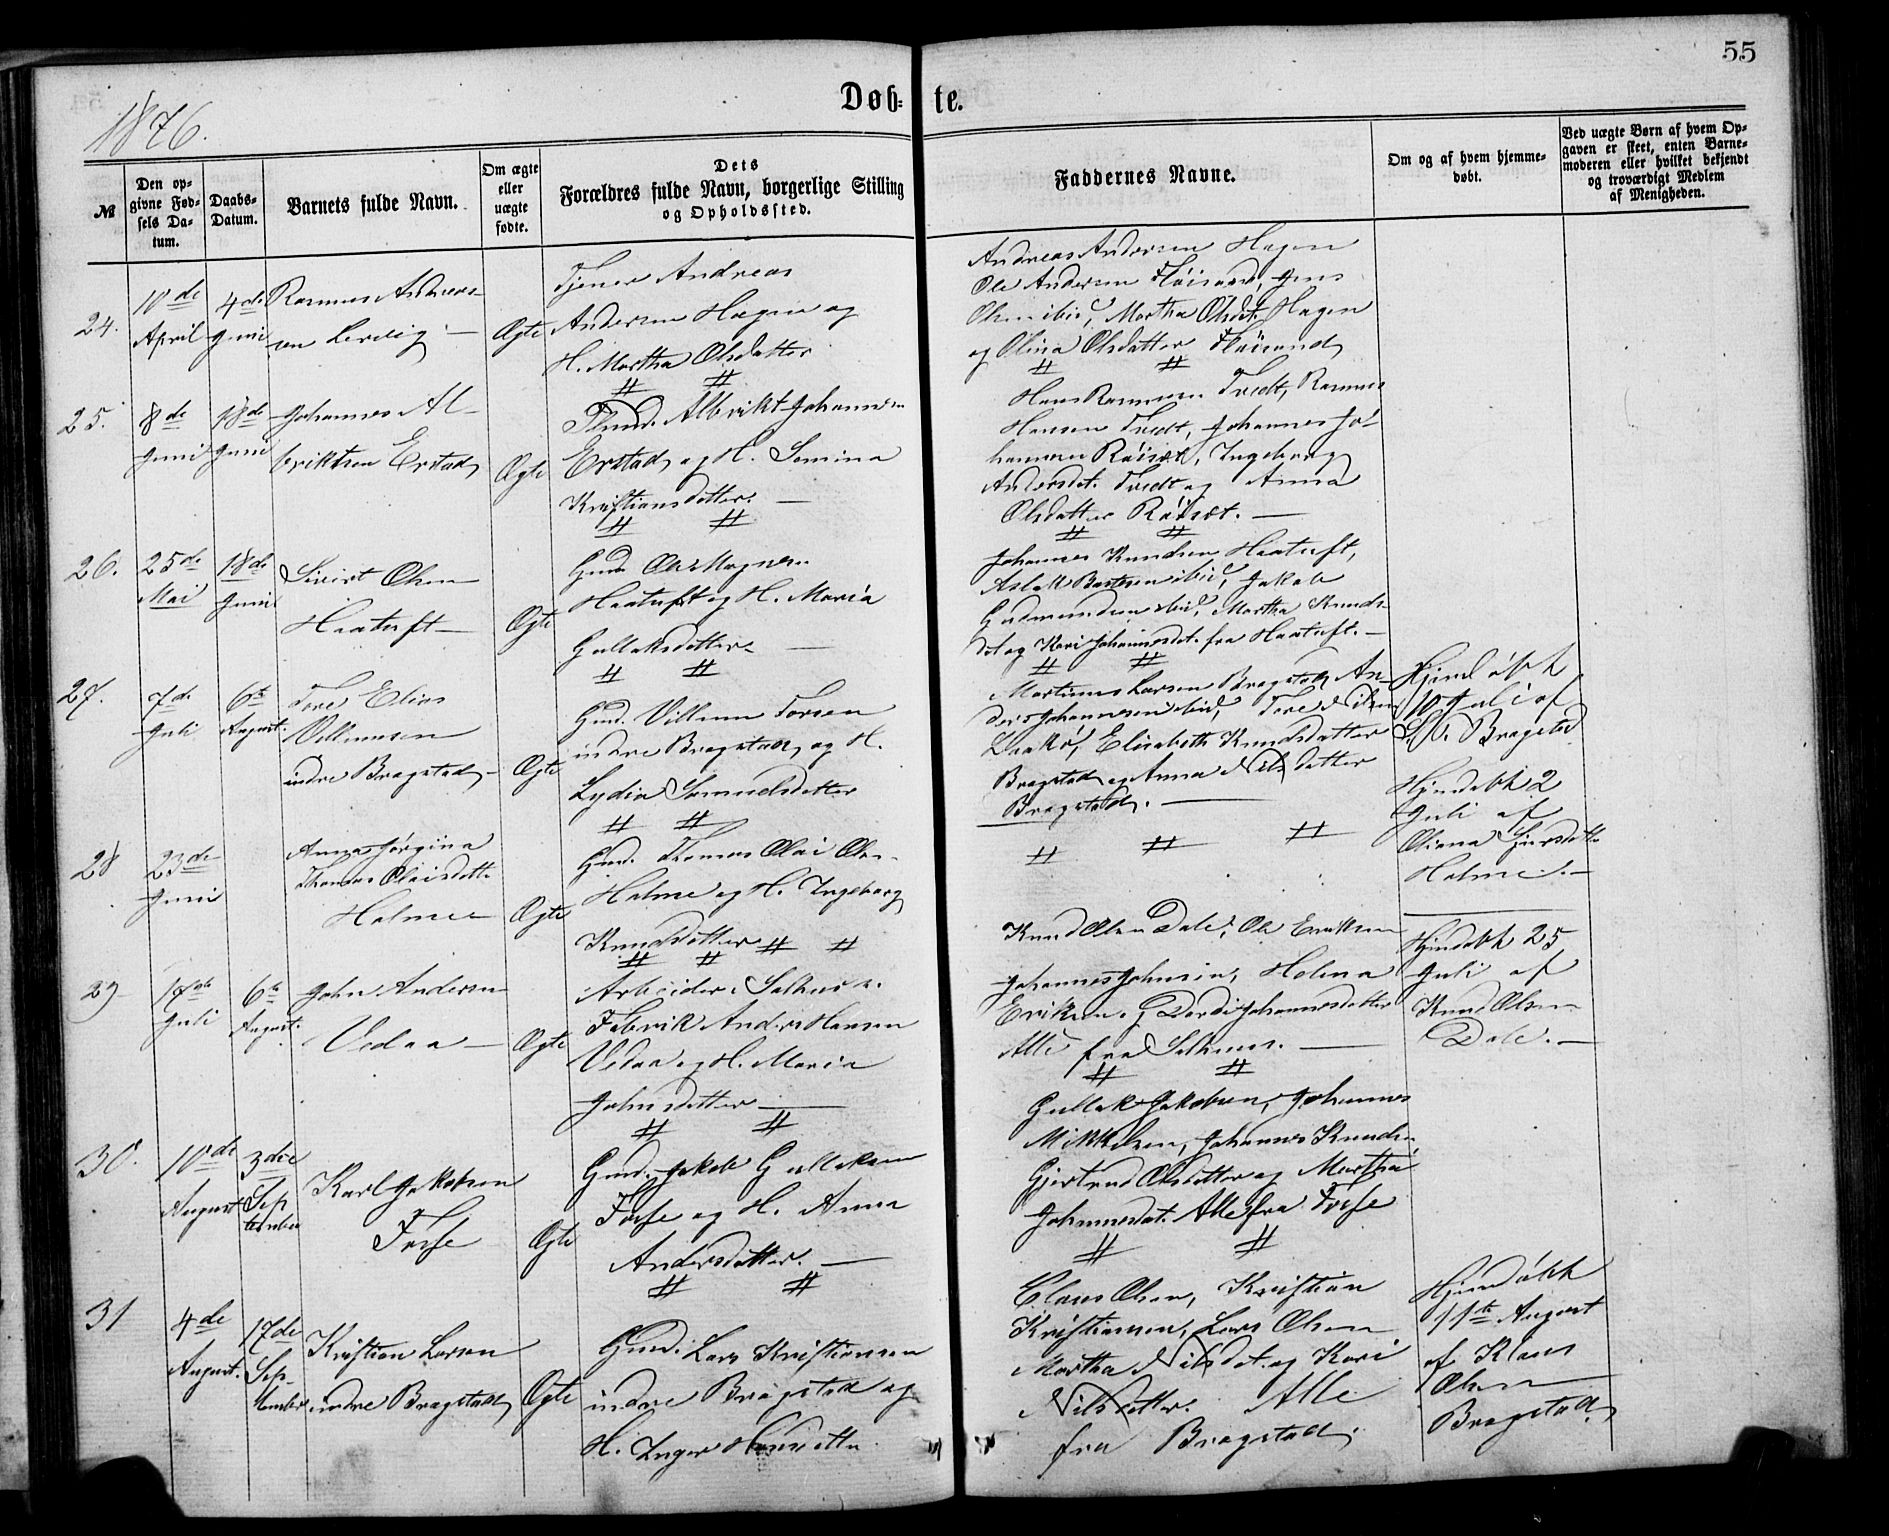 55
Døb- te.
1876.
№
Den op-
givne Fød-
sels Da-
tum.
Daabs-
Datum.
Barnets fulde Navn.
Om ægte
eller
uægte
fødte.
Dets
Forældres fulde Navn, borgerlige Stilling
og Opholdssted.
Faddernes Navne.
Om og af hvem hjemme-
døbt.
Ved uægte Børn af hvem Op-
gaven er skeet, enten Barne-
moderen eller hvilket bekjendt
og troværdigt Medlem
af Menigheden.
24.
10de
April
4de
Juni
Rasmus Andreas-
Ægte
Tjener Andreas
Andersen Hagen og
H. Martha Olsdatter
Andreas Andersen Hagen
Ole Andersen Jens
Olsen ibid, Martha Olsdt. Hagen
og Olina Olsdatter
25.
8de
Juni
18de
Juni
Johannes Al-
briktsen Erstad
Ægte
Albrikt Johannesen
Erstad og H. Semina
Kristiansdatter. —
Hans Rasmusen Tvedt, Rasmus
Hansen Tvedt, Johannes Jo-
hannesen Röiset, Ingeborg
Andersdt. Tvedt og Anna
Olsdatter Röiset. —
26.
25de
Mai
18de
Juni
Sivert Olsen
Haatuft —
Ægte
Gmd. Ole Magnesen
Haatuft og H. Maria
Gullaksdatter. —
Johannes Knudsen Haatuft,
Aslak Bertesen ibid, Jakob
Gudmundsen ibid, Martha Knuds-
dt og Kari Johannesdt. fra Haatuft. —
27.
7de
Juli
6te
August.
Tore Elias
Villumsen
indre Bragstad —
Ægte
Gmd. Villum Torsen
indre Bragstad og H.
Lydia Samuelsdatter
Martinus Larsen Bragstad, An-
ders Johannesen ibid, Tore Nilsen
Elisabeth Knudsdatter
Bragstad og Anna Nilsdatter
Bragstad. —
Hjemdøbt
10 Juli af
Bragstad
28
23de
Juni
Anna Jørgina
Thomas Olaisdatt.
Holme —
Ægte
Gmd. Thomas Olai Olsen
Holme og H. Ingeborg
Knudsdatter
Hjemdøbt 2
Juli af
Oliana
Holme. —
29
6te
August.
Juli
John Andersen
Vedaa —
Ægte
Arbeider i Salhus
Fabrik Anders Hansen
Vedaa og H. Maria
Johnsdatter —
Knud Olsen Dale, Ole Eriksen
Johannes Johnsen, Helena
Eriksen og Dordi Johannesdatter
Alle fra Salhus. —
Hjemdøbt 25
Juli af
Knud Olsen
Dale. —
30.
10de
August
3die
Sep
tember
Karl Jakobsen
Fosse
Ægte
Gmd. Jakob Gullaksen
Fosse og H. Anna
Andersdatter. —
Gullak Jakobsen, Johannes
Mikkelsen, Johannes Knudsen
Gjertrud Olsdatter og Martha
Johannesdt. Alle fra Fosse
31
4de
August.
17de
Sep-
tember
Kristian Larsen
indre Bragstad
Ægte
Gmd. Lars Kristiansen
indre Bragstad og
H. Inger
Claus Olsen, Kristian
Kristiansen, Lars Olsen
Martha Nilsdt. og Kari
Nilsdatter. Alle
fra Bragstad.
Hjemdøbt
11te August
af Klaus
Olsen
Bragstad